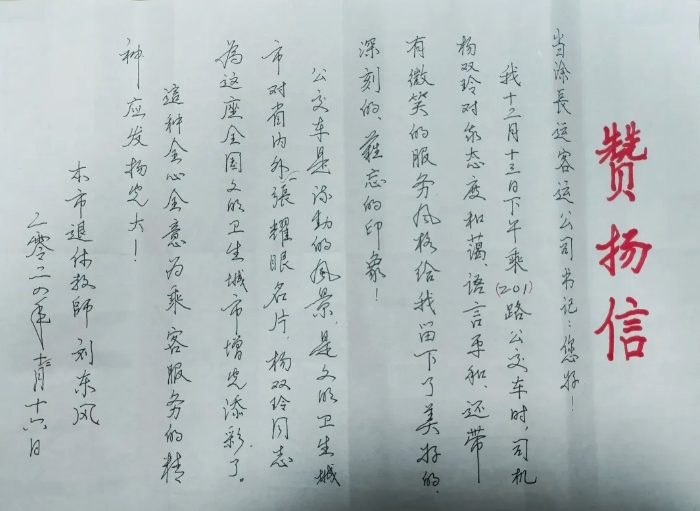 赞扬信
当涂長运客运公司书记：您好！
我十二月十三日下午乘(201)路公交车时，司机
杨双玲对象态度和蔼、语言平和、还带
有微笑的服务风格给我留下了美好的、
深刻的、难忘的印象！
公交车是流动的风景，是文明卫生城
市对省内外一張耀眼名片，杨双玲同志
為这座全国文明卫生城市增光添彩了。
這种全心全意为乘客服务的精
神应发扬光大！
本市退休教師 刘东风
二零二四年十二月十六日